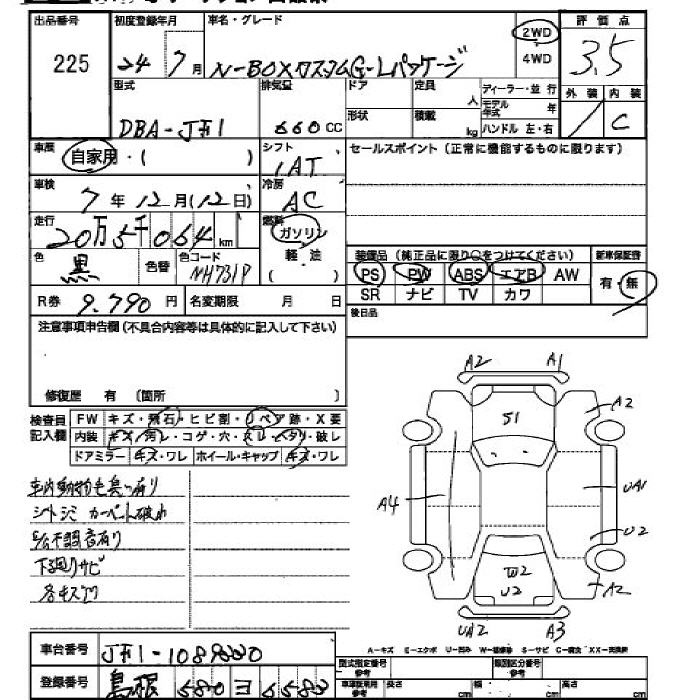 出品番号 初度登録年月 車名・グレード 2WD 4WD 評価点
225 24年7月 N-BOXカスタムG-Lパッケージ 3.5
型式 排気量 ドア 定員 人 ディーラー・並行 外装 内装
DBA-JF1 660cc 形状 積載 kg モデル年式 年 ハンドル 左・右 C
車歴 自家用・( ) シフト IAT セールスポイント(正常に機能するものに限ります)
車検 7年12月(12日) 冷房 AC
走行 20万5千064km 燃料 ガソリン 軽油 ( )
色 黒 色替 色コード NH731P
装備品(純正品に限り○をつけてください) 新車保証書
PS PW ABS エアB AW 有・無
SR ナビ TV カワ
R券 9.790円 名変期限 月 日 後日品
注意事項申告欄(不具合内容等は具体的に記入して下さい)
修復歴 有 〔箇所 〕
検査員記入欄 FW キズ・飛石・ヒビ割・リペア跡・X要
内装 キズ・汚レ・コゲ・穴・スレ・ヘタリ・破レ
ドアミラー キズ・ワレ ホイール・キャップ キズ・ワレ
車内動物毛臭い有り
シートシミ カーペット破れ
下廻りサビ
A2 A1
A2
S1
A4 UA1
U2
W2
U2 A2
UA2 A3
A-キズ E-エクボ U-凹み W-補修跡 S-サビ C-腐食 XX-交換跡
車台番号 JF1-1089220
型式指定番号 参考 類別区分番号 参考
登録番号 島根 580 ヨ 6582
車検証取得 参考 長さ cm 幅 cm 高さ cm